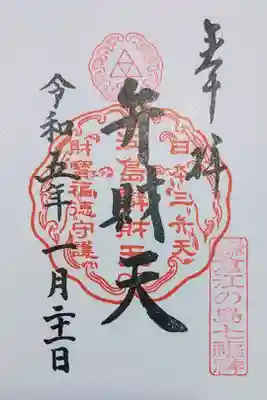 奉拝
日本三弁天
弁財天
江島辯財天
財寶福徳守護
令和五年一月二十一日
江の島七福神